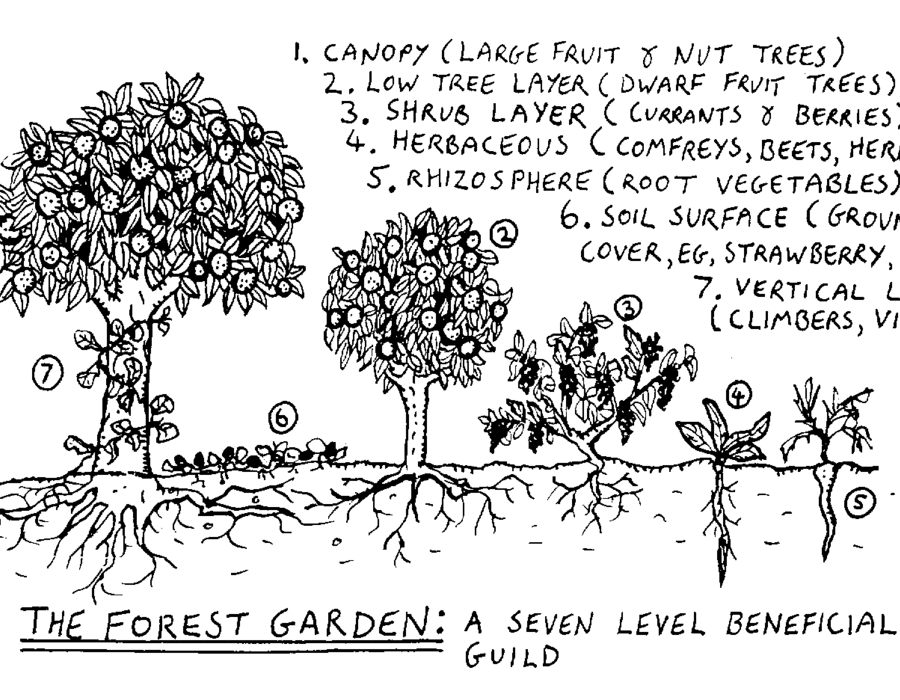 1. CANOPY (LARGE FRUIT & NUT TREES)
2. LOW TREE LAYER (DWARF FRUIT TREES)
3. SHRUB LAYER (CURRANTS & BERRIES)
4. HERBACEOUS (COMFREYS, BEETS,
5. RHIZOSPHERE (ROOT VEGETABLES)
6. SOIL SURFACE
COVER, EG, STRAWBERRY,
7. VERTICAL
(CLIMBERS,
2
3
7
6
4
5
THE FOREST GARDEN: A SEVEN LEVEL BENEFICIAL
GUILD